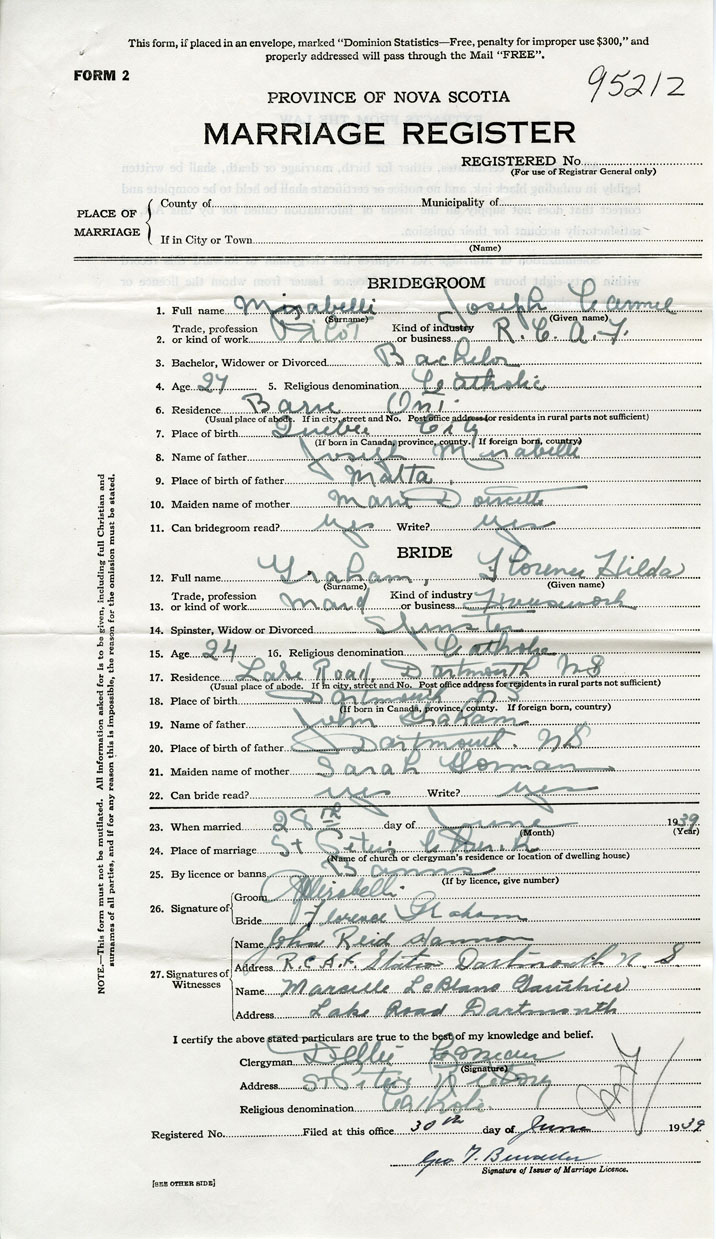 This form, if placed in an envelope, marked "Dominion Statistics—Free, penalty for improper use $300," and
properly addressed will pass through the Mail "FREE".
FORM 2
95212
PROVINCE OF NOVA SCOTIA
MARRIAGE REGISTER
REGISTERED No.
(For use of Registrar General only)
PLACE OF MARRIAGE
County of Municipality of
If in City or Town
(Name)
BRIDEGROOM
1. Full name Mirabelli Joseph Carmel
(Surname) (Given name)
2. Trade, profession or kind of work Pilot Kind of industry or business R.C.A.F.
3. Bachelor, Widower or Divorced Bachelor
4. Age 27 5. Religious denomination Catholic
6. Residence Ont.
(Usual place of abode. If in city, street and No. Post office address for residents in rural parts not sufficient)
7. Place of birth Quebec City
(If born in Canada, province, county. If foreign born, country)
8. Name of father Joseph Mirabelli
9. Place of birth of father Malta
10. Maiden name of mother Marie
11. Can bridegroom read? yes Write? yes
BRIDE
12. Full name Graham, Florence Hilda
(Surname) (Given name)
13. Trade, profession or kind of work Maid Kind of industry or business Housework
14. Spinster, Widow or Divorced Spinster
15. Age 24 16. Religious denomination Catholic
17. Residence Lake Road, Dartmouth NS
(Usual place of abode. If in city, street and No. Post office address for residents in rural parts not sufficient)
18. Place of birth Dartmouth NS
(If born in Canada, province, county. If foreign born, country)
19. Name of father John Graham
20. Place of birth of father Dartmouth. NS
21. Maiden name of mother Sarah
22. Can bride read? yes Write? yes
23. When married 28th day of June 1939
(Month) (Year)
24. Place of marriage St Peter's Church
(Name of church or clergyman's residence or location of dwelling house)
25. By licence or banns Banns
(If by licence, give number)
26. Signature of Groom JMirabelli.
Bride Florence Graham
27. Signatures of Witnesses
Name John Reid Hannon
Address R.C.A.F. Station Dartmouth N.S.
Name Marselle LeBlanc Gauthier
Address Lake Road Dartmouth
I certify the above stated particulars are true to the best of my knowledge and belief.
Clergyman Comeau
(Signature)
Address St Peter's Rectory
Religious denomination Catholic
Registered No. Filed at this office 30th day of June 1939
Geo T.
Signature of Issuer of Marriage Licence.
[SEE OTHER SIDE]
NOTE.—This form must not be mutilated. All information asked for is to be given, including full Christian and
surnames of all parties, and if for any reason this is impossible, the reason for the omission must be stated.